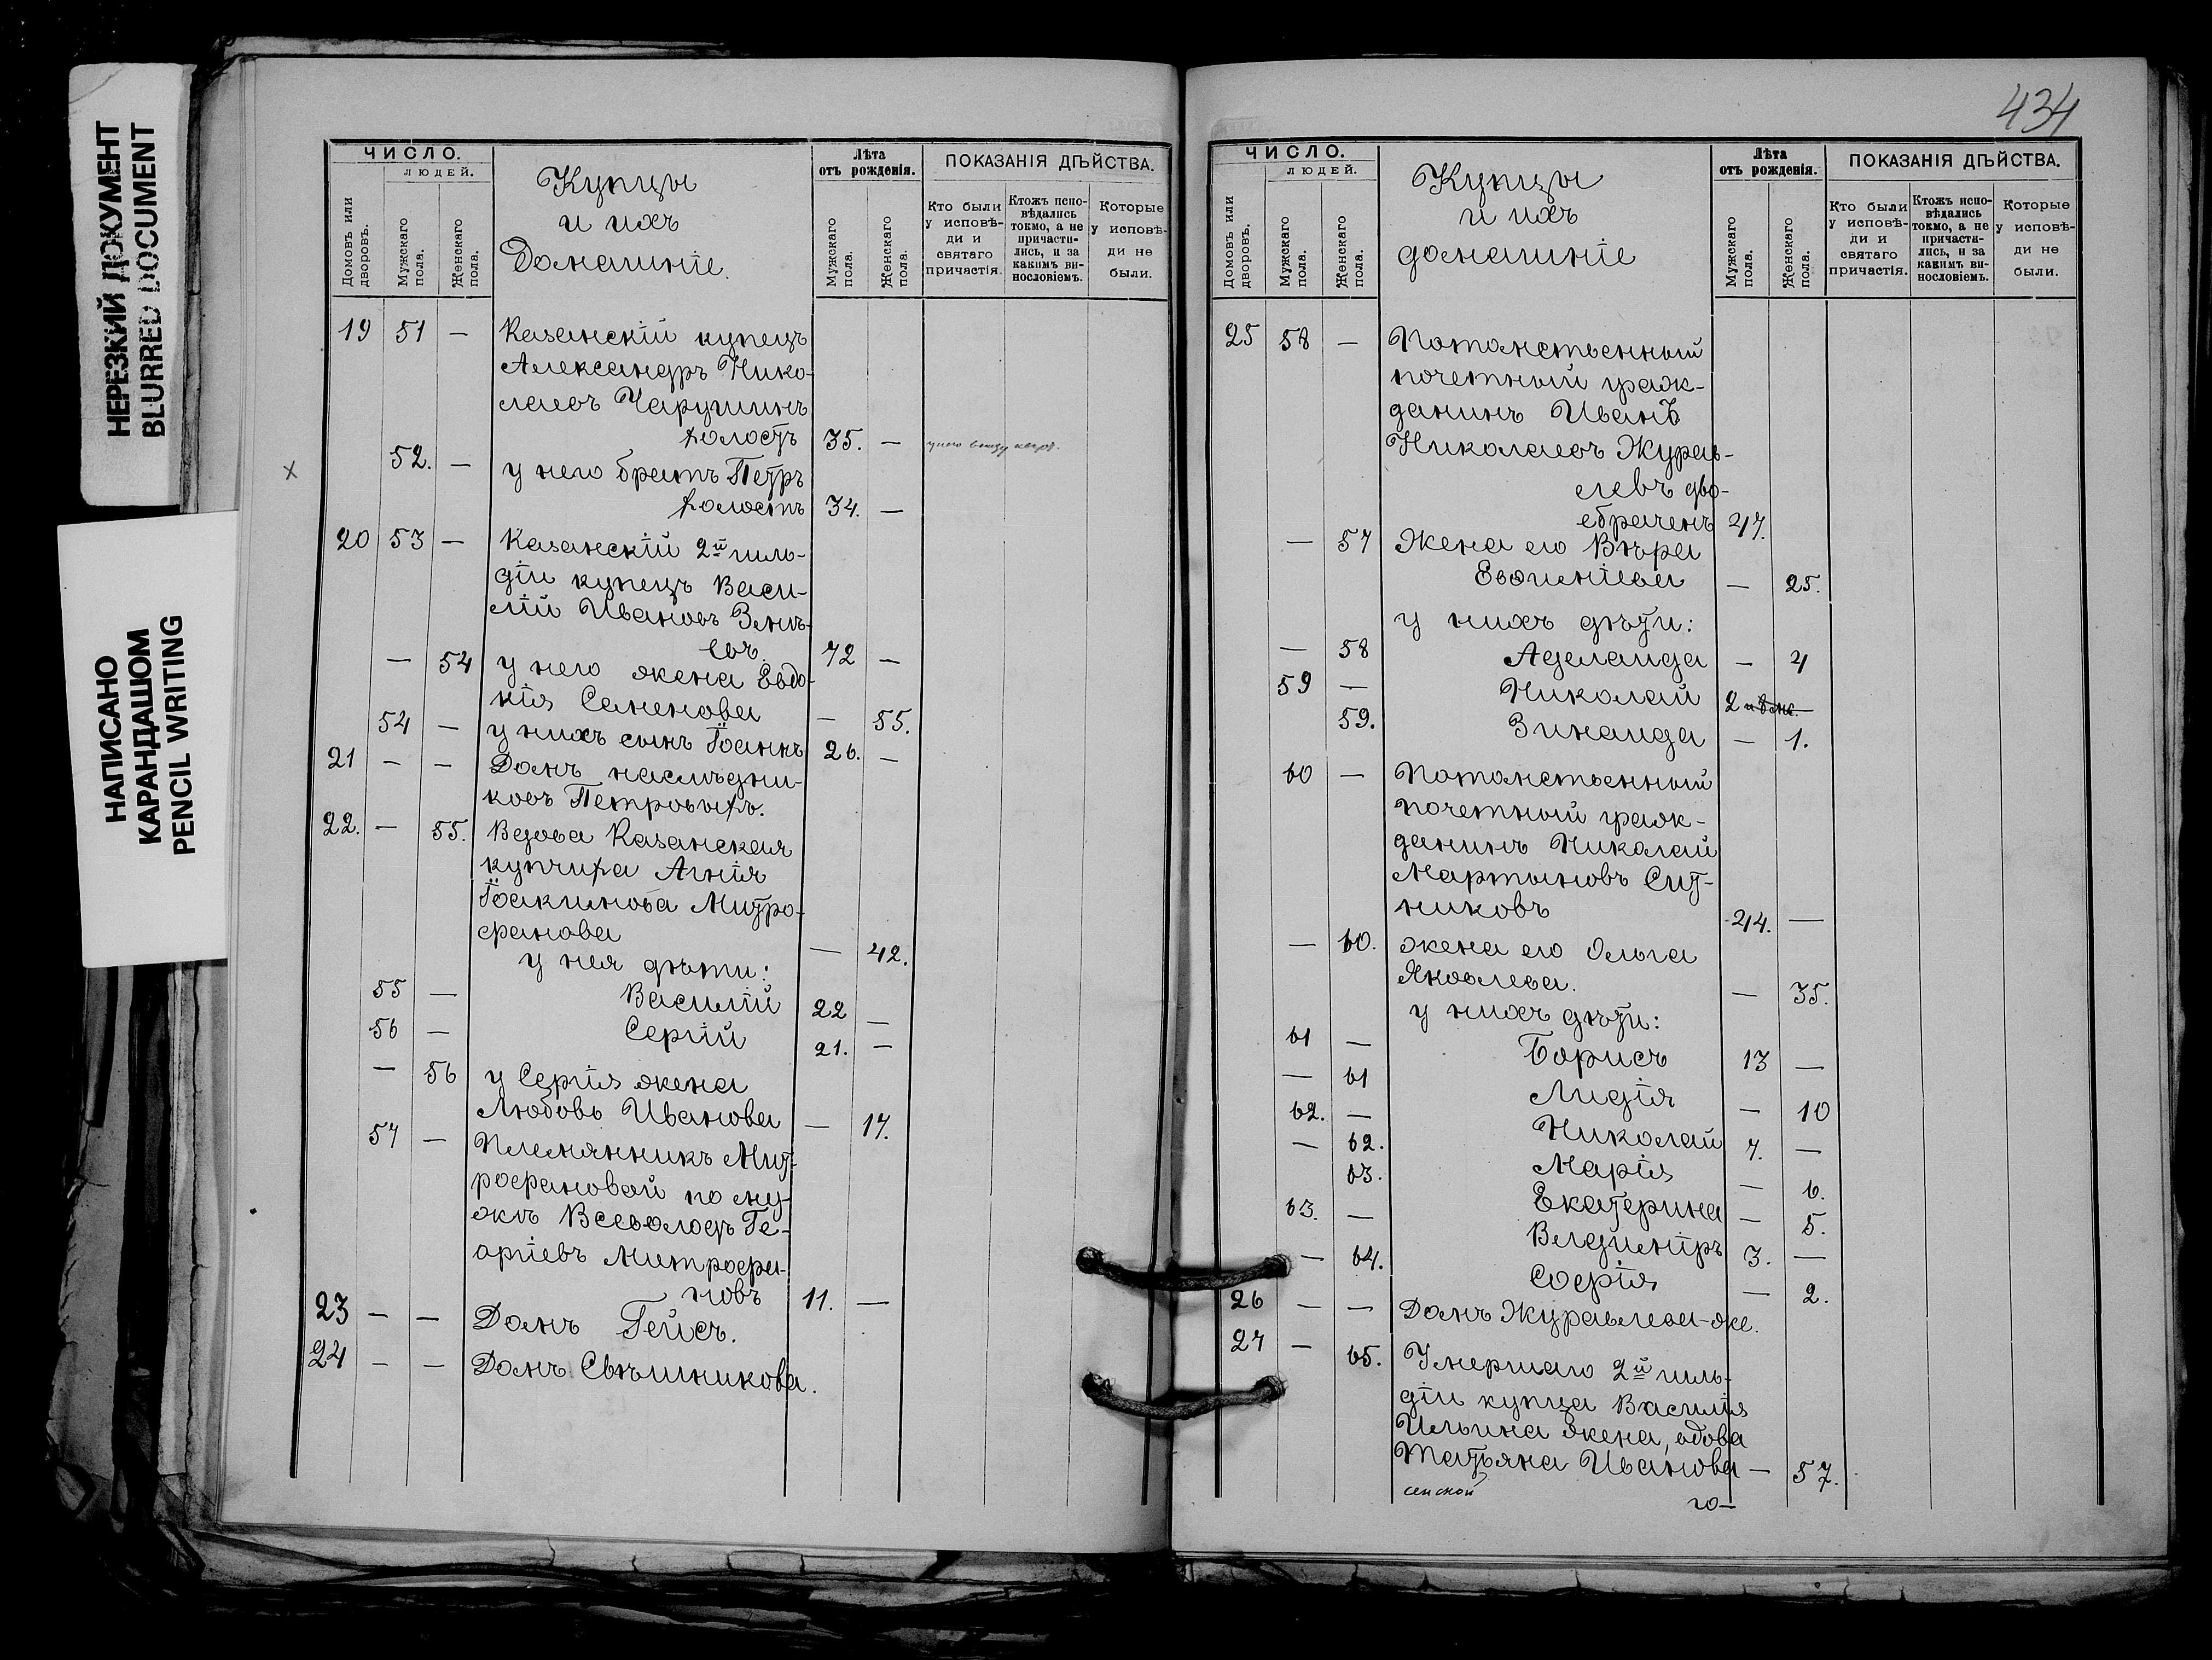 НЕРЕЗКИЙ ДОКУМЕНТ
BLURRED DOCUMENT
НАПИСАНО
КАРАНДАШОМ
PENCIL WRITING
ЧИСЛО.
ЛЮДЕЙ.
Домовъ или дворовъ.
Мужскаго пола.
Женскаго пола.
Купцы
и ихъ
Домашніе.
Лѣта
отъ рожденія.
Мужскаго пола.
Женскаго пола.
ПОКАЗАНІЯ ДѢЙСТВА.
Кто были у исповѣди и святаго причастія.
Ктожъ исповѣдались токмо, а не причастились, и за какимъ винословіемъ.
Которые у исповѣди не были.
19 51 — Казанскій купецъ
Александръ Нико-
лаевъ Чарушинъ
холостъ 35. —
52. — у него братъ Петръ
холостъ 34. —
20 53 — Казанскій 2й гиль-
діи купецъ Васи-
лій Ивановъ Змѣ-
евъ. 72 —
— 54 у него жена Евдо-
кія Семенова — 55.
54 — у нихъ сынъ Іоаннъ 26. —
21 — — Домъ наслѣдни-
ковъ Петровыхъ.
22. — 55. Вдова Казанская
купчиха Агнія
Іоакимова Митро-
фанова — 42.
у нея дѣти:
55 — Василій 22 —
56 — Сергій 21. —
— 56 у Сергія жена
Любовь Иванова — 17.
57 — Племянникъ Мит-
рофановой по му-
жѣ Всеволодъ Ге-
оргіевъ Митрофа-
новъ 11. —
23 — — Домъ Гейсъ.
24 — — Домъ Свѣшникова.
434
ЧИСЛО.
ЛЮДЕЙ.
Домовъ или дворовъ.
Мужскаго пола.
Женскаго пола.
Купцы
и ихъ
домашніе
Лѣта
отъ рожденія.
Мужскаго пола.
Женскаго пола.
ПОКАЗАНІЯ ДѢЙСТВА.
Кто были у исповѣди и святаго причастія.
Ктожъ исповѣдались токмо, а не причастились, и за какимъ винословіемъ.
Которые у исповѣди не были.
25 58 — Потомственный
почетный граж-
данинъ Иванъ
Николаевъ Журав-
левъ дво-
ебраченъ 47.
— 57 Жена его Вѣра
Евѳиміева — 25.
у нихъ дѣти:
— 58 Аделаида — 4
59 — Николай 2
59. Зинаида — 1.
60 — Потомственный
почетный граж-
данинъ Николай
Мартыновъ Сит-
никовъ 44. —
— 60. жена его Ольга
Яковлева. — 35.
у нихъ дѣти:
61 — Борисъ 13 —
— 61 Лидія — 10
62. — Николай 7. —
— 62. Марія — 6.
63. Екатерина — 5.
63. — Владиміръ 3. —
— 64. Софія — 2.
26 — — Домъ Журавлева-же.
27 — 65. Умершаго 2й гиль-
діи купца Василія
Ильина жена, вдова
Татьяна Иванова — 57.